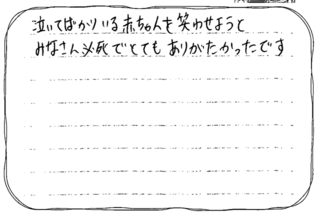 泣いてばかりいる赤ちゃんを笑わせようと
みなさん必死でとてもありがたかったです